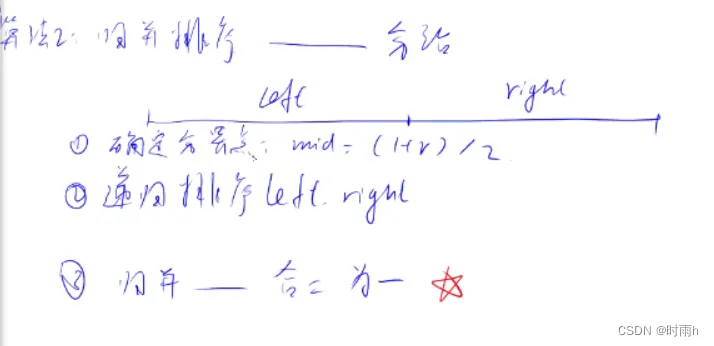 算法2: 归并排序 —— 分治
left right
① 确定分界点: mid = (l+r) / 2
② 递归排序 left. right
③ 归并 —— 合二为一 ☆
CSDN @时雨h